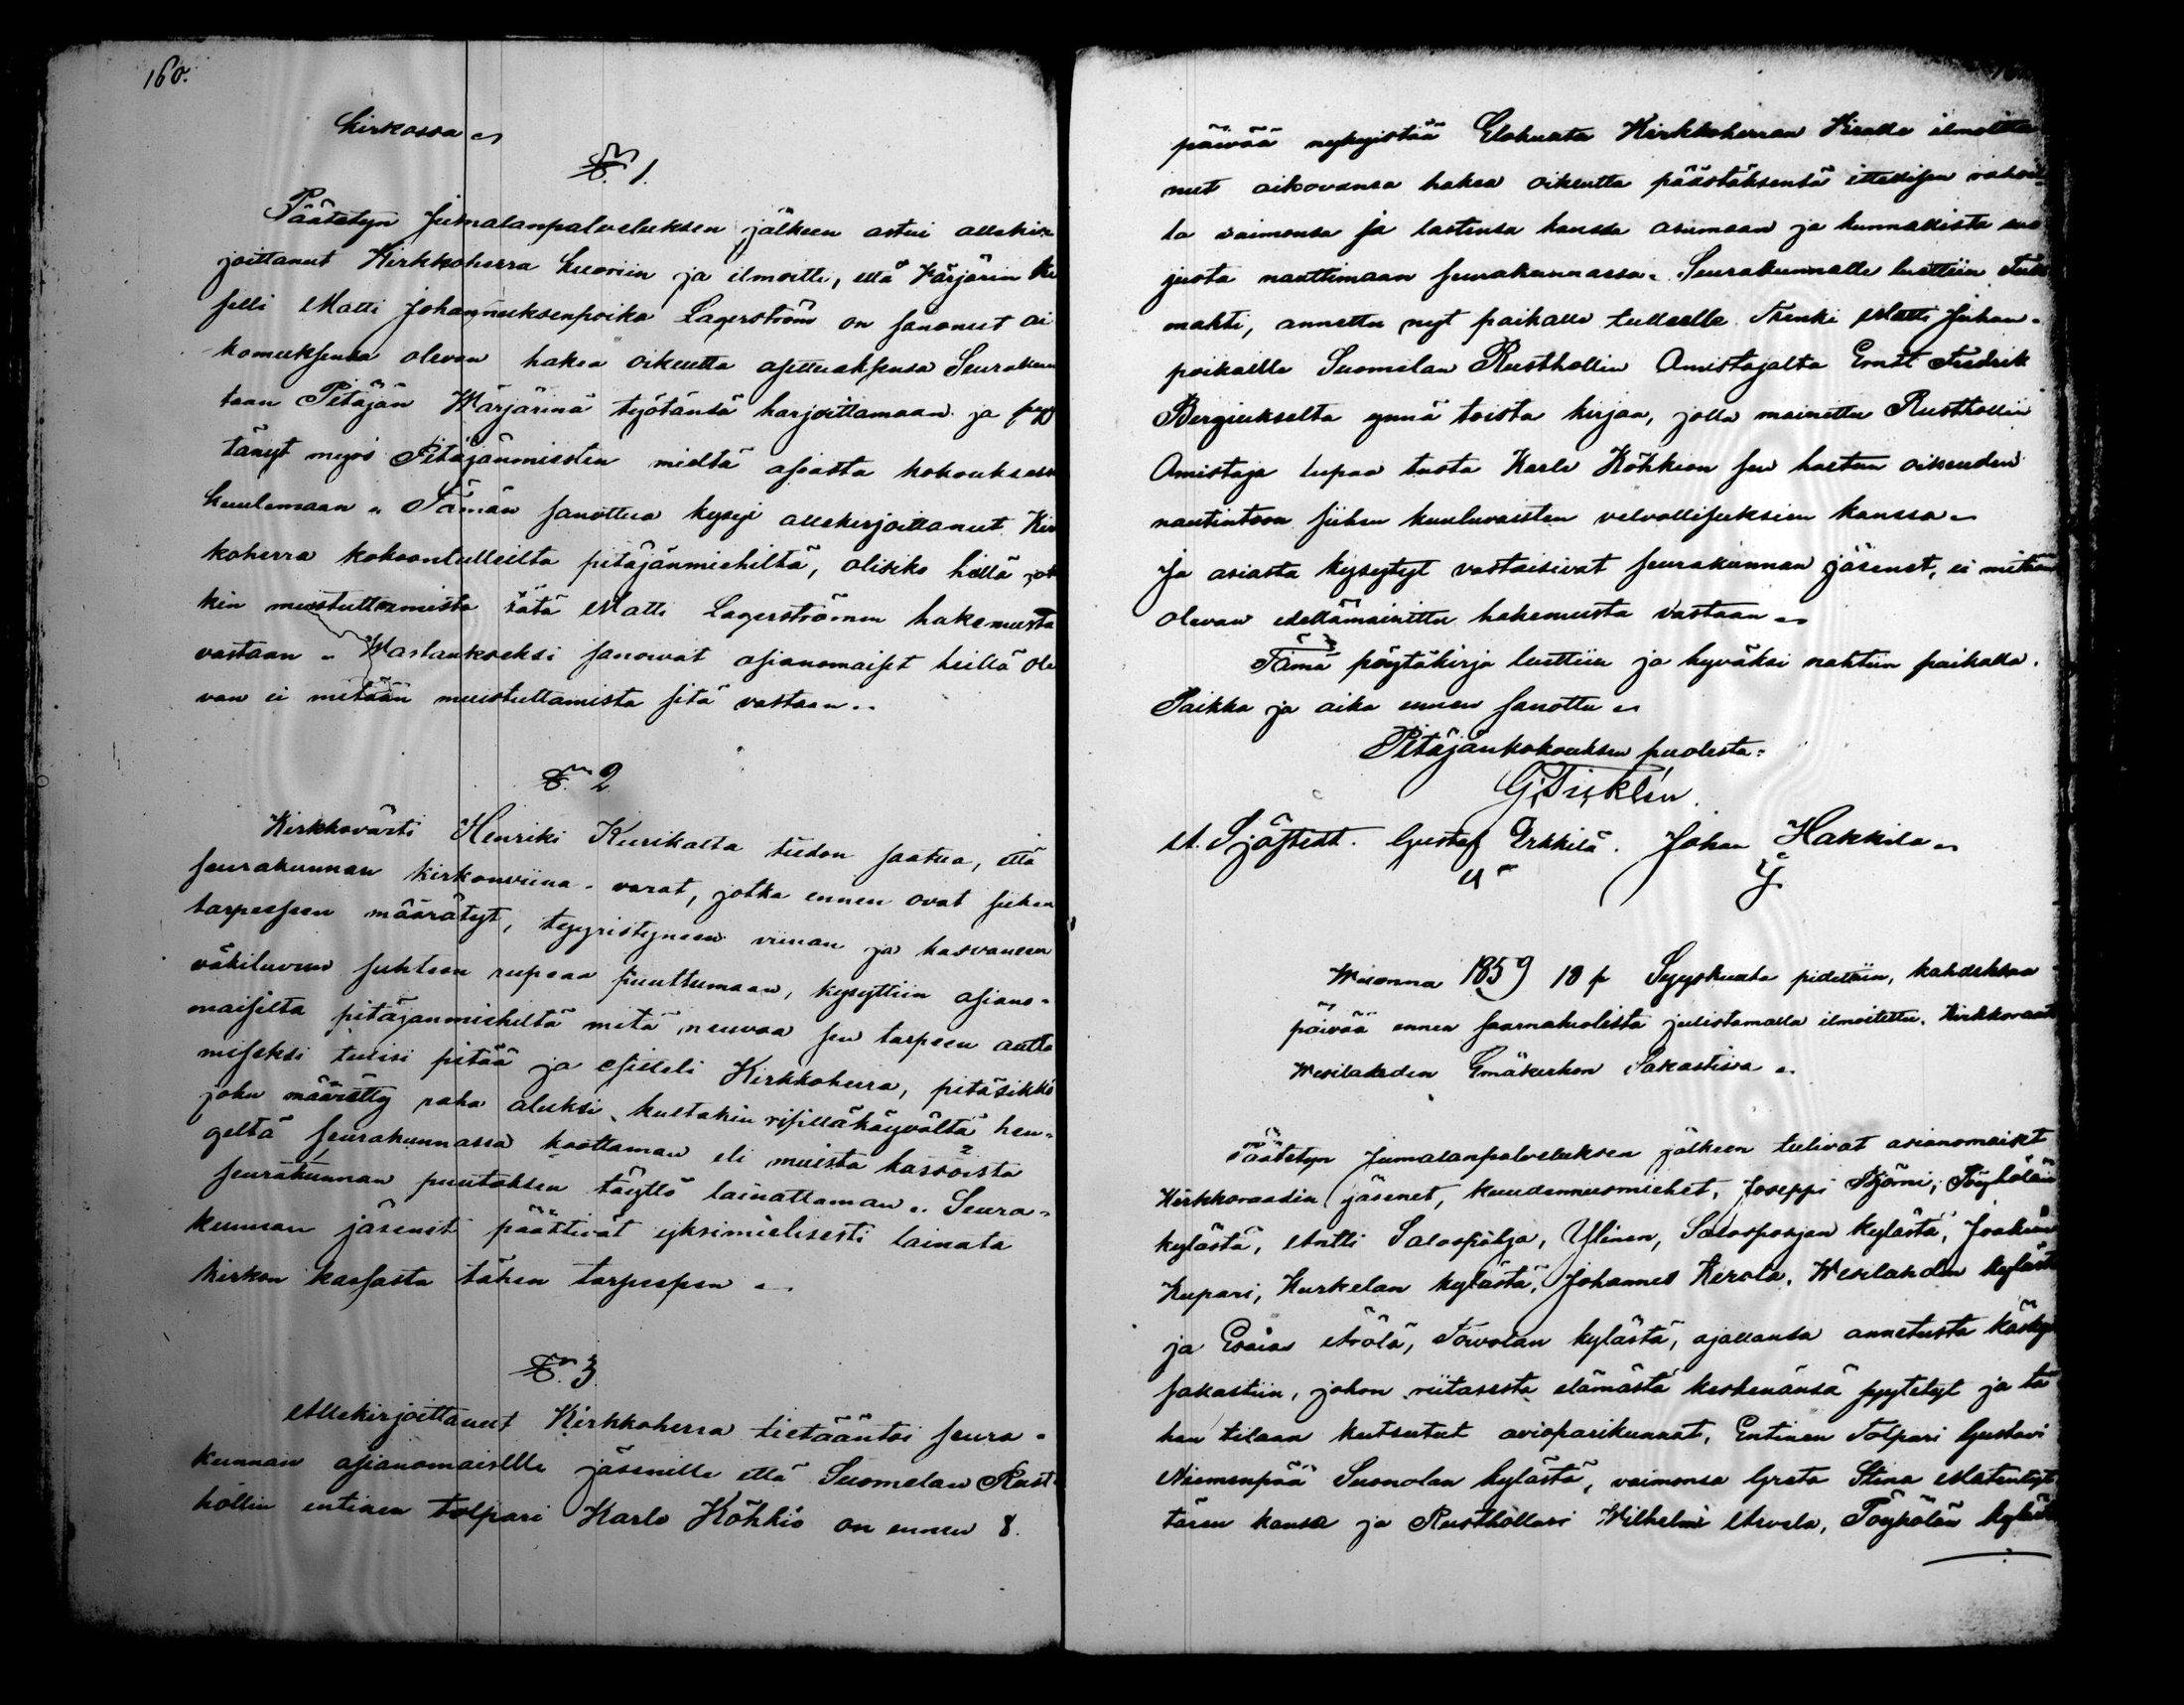 160.
kirkossa
§ 1.
Päätetyn Jumalanpalveluksen jälkeen astui allekir
joittanut Kirkkoherra kuoriin ja ilmoitti, että Värjärin ki
selli Matti Johannuksenpoika Lagerström on sanonut ai
komuksensa olevan hakea oikeutta asettuaksensa Seurakun
taan Pitäjän Wärjärinä työtänsä harjoittamaan ja pyy
tänyt myös Pitäjänmiesten mieltä asiasta kokouksessa
kuulemaan. Tämän sanottua kysyi allekirjoittanut Kir
koherra kokoontulleilta pitäjänmiehiltä, olisiko heillä jota
kin muistuttamista tätä Matti Lagerströmin hakemusta
vastaan. Wastaukseksi sanoivat asianomaiset heillä ole
van ei mitään muistuttamista sitä vastaan.
§ 2
Kirkkovärti Henriki Kurikalta tiedon saatua, että
seurakunnan kirkonviina-varat, jotka ennen ovat siihen
tarpeeseen määrätyt, tyyristyneen viinan ja kasvaneen
väkiluvun suhteen rupeaa puuttumaan, kysyttiin asiano-
maisilta pitäjänmiehiltä mitä neuvoa sen tarpeen autta
miseksi tulisi pitää ja esitteli Kirkkoherra, pitäsikkö
joku määrätty raha aluksi kultakin ripillä käyvältä hen-
geltä seurakunnassa koottaman eli muista kassoista
seurakunnan puutoksen täyttö lainattaman. Seura-
kunnan jäsenet päättivät yksimielisesti lainata
kirkon kassasta tähen tarpeesen
§ 3
Allekirjoittanut Kirkkoherra tietääntoi seura-
kunnan asianomaisille jäsenille että Suomelan Rust
hollin entinen tolpari Karlo Köhkiö on ennen 8.
päivää nykyistä Elokuuta Kirkkoherran Viralle ilmoitta
nut aikovansa hakea oikeutta päästäksensä
la vaimonsa ja lastensa kanssa asumaan ja kunnallista suo
justa nauttimaan seurakunnassa. Seurakunnalle luettiin
mahti, annettu nyt paikalle tulleelle Trenki Matti Juhan-
poikaille Suomelan Rusthollin Omistajalta Ernst Fredrik
Bergiukselta ynnä toista kirjaa, jolla mainittu Rusthollin
Omistaja lupaa tästa Karlo Köhkion sen haetun oikeuden
nautintoon siihen kuuluvaisten velvollisuksien kanssa
Ja asiasta kysytyt vastaisivat seurakunnan jäsenet, ei mitään
olevan edellämainittu hakemusta vastaan
Tämä pöytäkirja luettiin ja hyväksi nähtiin paikalla.
Paikka ja aika ennen sanottu
Pitäjänkokouksen puolesta:
G. Ticklén.
A. Sjöstedt. Gustaf Erkkilä. Johan Hakkila
Wuonna 1859 18 p Syyskuuta pidettiin, kahdeksaa
päivää ennen saarnatuolista julistamalla ilmoitettu, Kirkkoraati
Wesilahden Emäkirkon Sakastissa
Päätetyn Jumalanpalveluksen jälkeen tulivat asianomaiset
Kirkkoraadin jäsenet, kuudennusmiehet, Joseppi Björni, Töyhölän
kylästä, Antti Salospohja, Ylinen, Salospohjan kylästä, Joakim
Kupari, Kurkelan kylästä, Johannes Kerola, Wesilahden kylästä
ja Esaias Arölä, Toivolan kylästä, ajallansa annetusta käskystä
sakastiin, johon riitasesta elämästä keskenänsä syytetyt ja tä
hän tilaan kutsutut avioparikunnat, Entinen Tolpari Gustavi
Niemenpää Suonolan kylästä, vaimonsa Greta Stina Matintyt
tären kansa ja Rusthollari Wilhelmi Arvela, Töyhölän kylästä